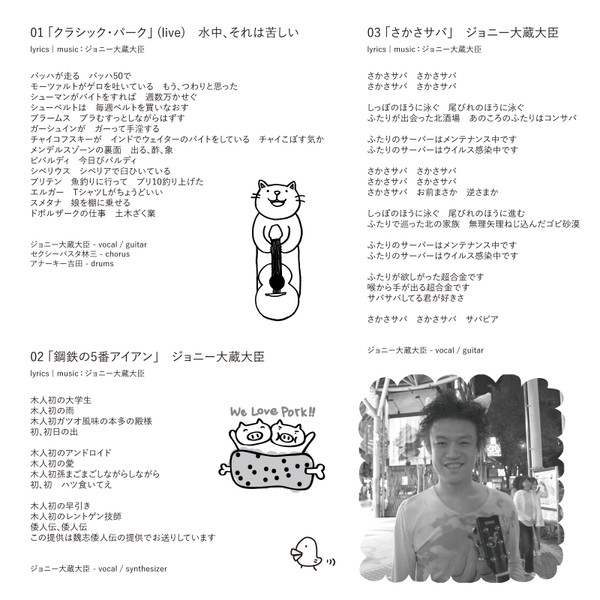 01「クラシック・パーク」(live)　水中、それは苦しい
lyrics | music：ジョニー大蔵大臣
バッハが走る　バッハ50で
モーツァルトがゲロを吐いている　もう、つわりと思った
シューマンがバイトをすれば　週数万かせぐ
シューベルトは　毎週ベルトを買いなおす
ブラームス　ブラむすっとしながらはずす
ガーシュインが　ガーって手淫する
チャイコフスキーが　インドでウェイターのバイトをしている　チャイこぼす気か
メンデルスゾーンの裏面　出る、酢、象
ビバルディ　今日びバルディ
シベリウス　シベリアで臼ひいている
ブリテン　魚釣りに行って　ブリ10釣り上げた
エルガー　TシャツLがちょうどいい
スメタナ　娘を棚に乗せる
ドボルザークの仕事　土木ざく業
ジョニー大蔵大臣 - vocal / guitar
セクシーパスタ林三 - chorus
アナーキー吉田 - drums
02「鋼鉄の5番アイアン」　ジョニー大蔵大臣
lyrics | music：ジョニー大蔵大臣
木人初の大学生
木人初の雨
木人初ガツオ風味の本多の殿様
初、初日の出
木人初のアンドロイド
木人初の愛
木人初孫まごまごしながらしながら
初、初　ハツ食いてえ
木人初の早引き
木人初のレントゲン技師
倭人伝、倭人伝
この提供は魏志倭人伝の提供でお送りしています
ジョニー大蔵大臣 - vocal / synthesizer
We Love Pork!!
03「さかさサバ」　ジョニー大蔵大臣
lyrics | music：ジョニー大蔵大臣
さかさサバ　さかさサバ
さかさサバ　さかさサバ
しっぽのほうに泳ぐ　尾びれのほうに泳ぐ
ふたりが出会った北酒場　あのころのふたりはコンサバ
ふたりのサーバーはメンテナンス中です
ふたりのサーバーはウイルス感染中です
さかさサバ　さかさサバ
さかさサバ　さかさサバ
さかさサバ　お前まさか　逆さまか
しっぽのほうに泳ぐ　尾びれのほうに進む
ふたりで巡った北の家族　無理矢理ねじ込んだゴビ砂漠
ふたりのサーバーはメンテナンス中です
ふたりのサーバーはウイルス感染中です
ふたりが欲しがった超合金です
喉から手が出る超合金です
サバサバしてる君が好きさ
さかさサバ　さかさサバ　サバビア
ジョニー大蔵大臣 - vocal / guitar